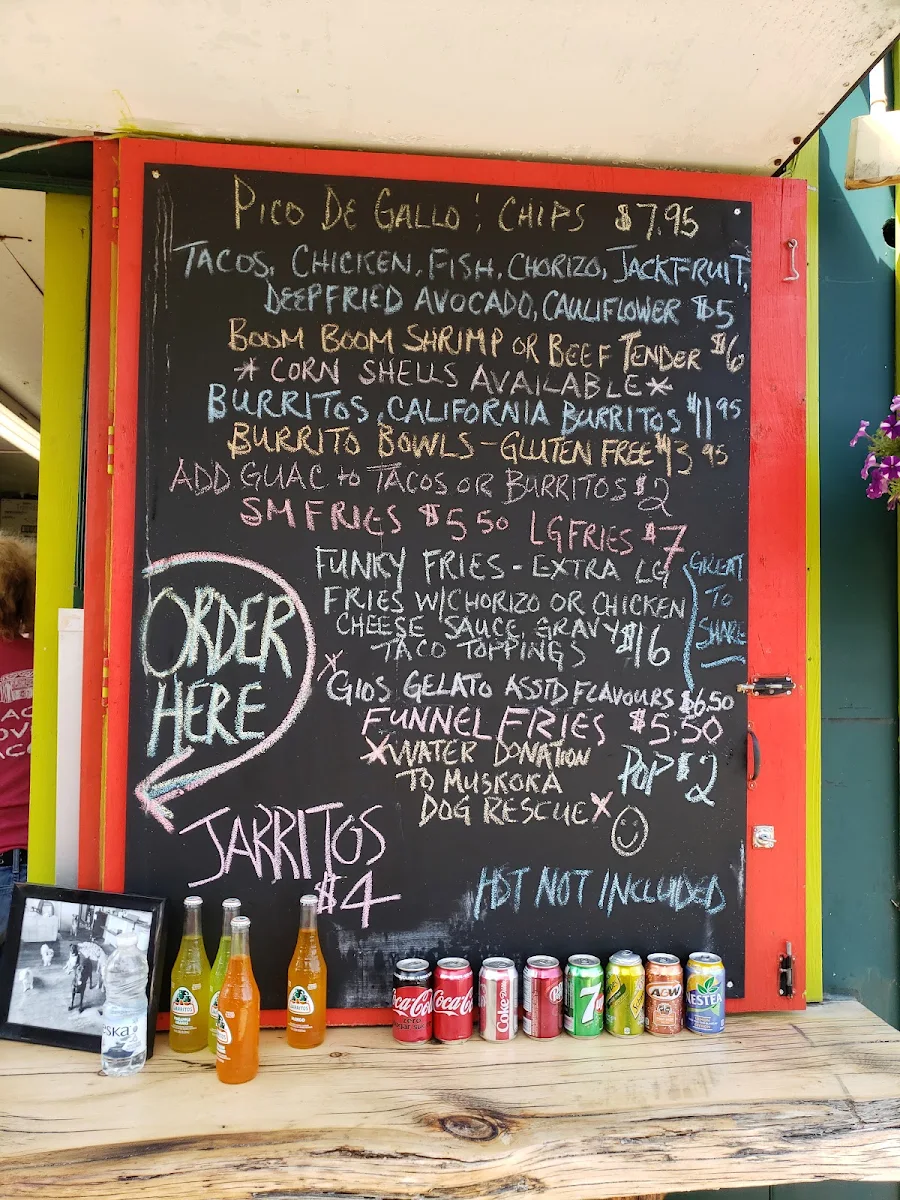 PICO DE GALLO : CHIPS $7.95
TACOS, CHICKEN, FISH, CHORIZO, JACKFRUIT,
DEEPFRIED AVOCADO, CAULIFLOWER $5
BOOM BOOM SHRIMP OR BEEF TENDER $6
* CORN SHELLS AVAILABLE *
BURRITOS, CALIFORNIA BURRITOS $11 95
BURRITO BOWLS - GLUTEN FREE $13 95
ADD GUAC to TACOS OR BURRITOS $2
SM FRIES $5 50 LG FRIES $7
FUNKY FRIES - EXTRA LG
FRIES W/CHORIZO OR CHICKEN
CHEESE SAUCE, GRAVY $16
TACO TOPPINGS
GREAT
TO
SHARE
ORDER
HERE
GIOS GELATO ASSTD FLAVOURS $6.50
FUNNEL FRIES $5.50
X WATER DONATION
TO MUSKOKA
DOG RESCUE X
POP $2
JARRITOS
$4
HST NOT INCLUDED
Coca-Cola
Coca-Cola
Coke
7
A&W
NESTEA